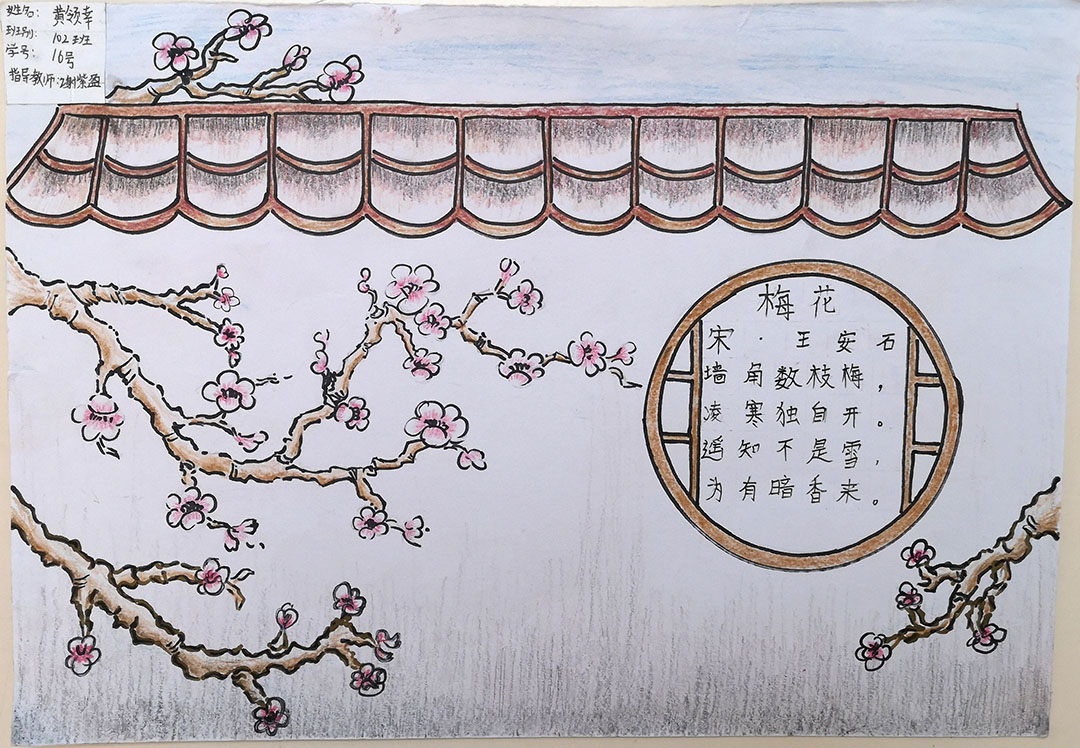 姓名：黄领幸
班别：102班
学号：16号
指导教师：谢紫盈
梅花
宋·王安石
墙角数枝梅，
凌寒独自开。
遥知不是雪，
为有暗香来。